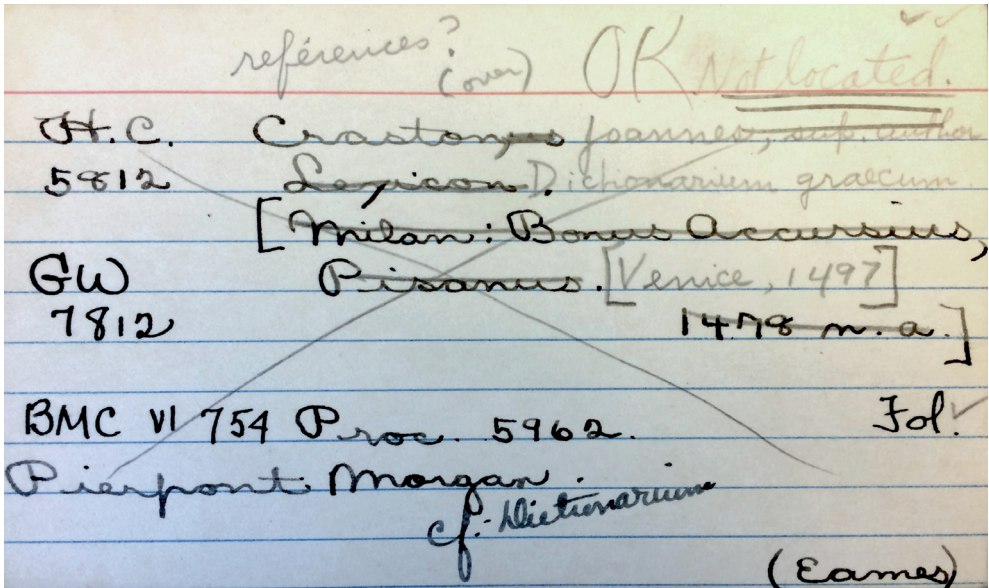 références? OK Not located.
(over)
H.C. Crastonus Joannes, sup. author
5812 Lexicon. Dictionarium graecum.
[Milan: Bonus Accursius,
GW Pisanus. [Venice, 1497]
7812 1478 n.a.]
BMC VI 754 Proc. 5962. Fol.
Pierpont Morgan.
cf: Dictionarium
(Eames)